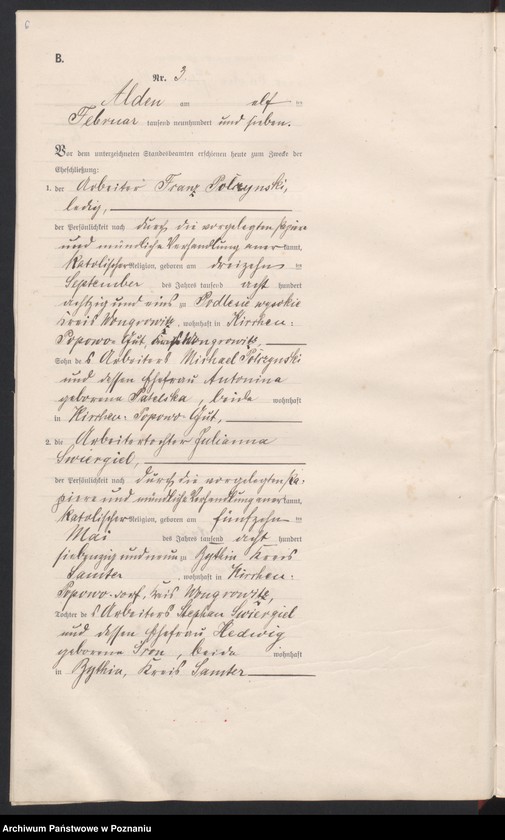 6
B.
Nr. 3.
Alden am elf ten
Februar tausend neunhundert und sieben.
Vor dem unterzeichneten Standesbeamten erschienen heute zum Zwecke der
Eheschließung:
1. der Arbeiter Franz Potrzynski,
ledig,
der Persönlichkeit nach durch die vorgelegten Papiere
und mündliche Verhandlung aner kannt,
katolischer Religion, geboren am dreizehn ten
September des Jahres tausend acht hundert
achtzig und eins zu Podlesie wysokie
Kreis Wongrowitz, wohnhaft in Kirchen-
Popowo-Gut, Kreis Wongrowitz,
Sohn des Arbeiters Michael Potrzynski
und dessen Ehefrau Antonina
geborene Patelska, beide wohnhaft
in Kirchen-Popowo-Gut,
2. die Arbeitertochter Julianna
Swiergiel,
der Persönlichkeit nach durch die vorgelegten Pa-
piere und mündliche Verhandlung aner kannt,
katolischer Religion, geboren am fünfzehn ten
Mai des Jahres tausend acht hundert
siebzig und neun zu Zythin Kreis
Samter, wohnhaft in Kirchen-
Popowo-Dorf, Kreis Wongrowitz,
Tochter des Arbeiters Stephan Swiergiel
und dessen Ehefrau Hedwig
geborene Sron, beide wohnhaft
in Zythin, Kreis Samter
Archiwum Państwowe w Poznaniu